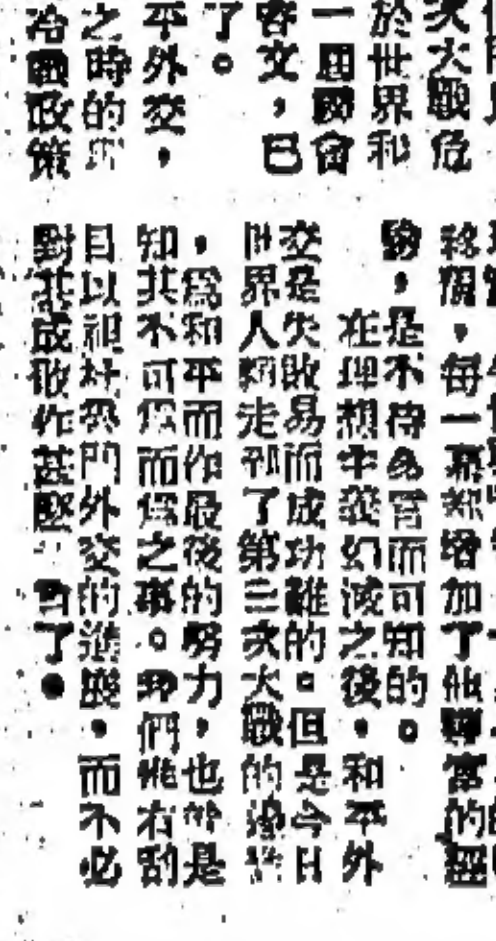 次大戰危
於世界和
一屆國會
容文，已
了。
平外交，
之時的
冷戰政策
移現，每一幕都增加了他聊當的經
驗，是不待多言而可知的。
在理想主義幻滅之後，和平外
交是失敗易而成功難的。但是今日
世界人類走到了第三次大戰的邊
，為和平而作最後的努力，也許是
知其不可為而為之事。我們惟有刮
目以視杜魯門外交的進展，而不必
對其成敗作甚麼 了。